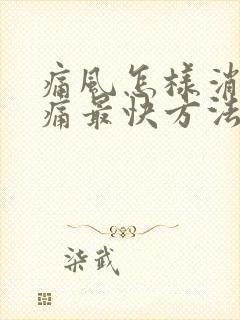 痛风怎样消
痛最快方法
柒武